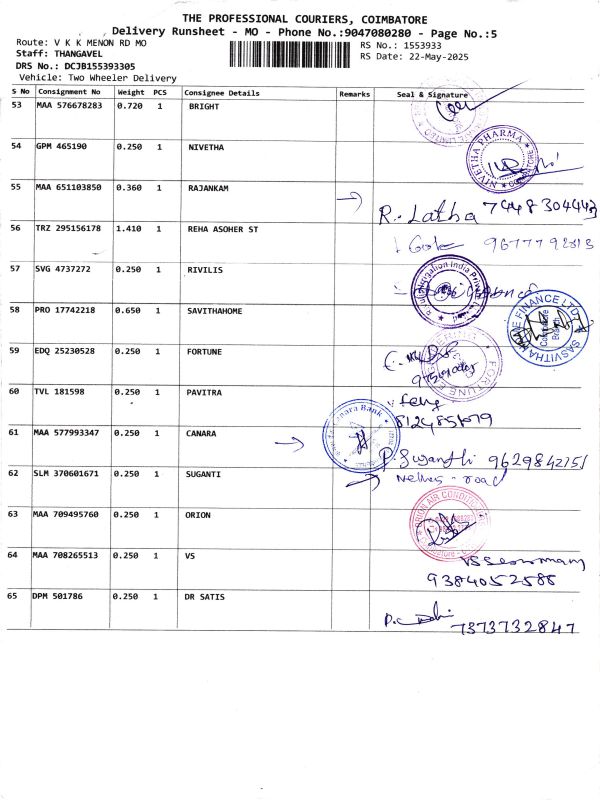 THE PROFESSIONAL COURIERS, COIMBATORE
Delivery Runsheet - MO - Phone No.:9047080280 - Page No.:5
Route: V K K MENON RD MO
RS No.: 1553933
Staff: THANGAVEL
RS Date: 22-May-2025
DRS No.: DCJB155393305
Vehicle: Two Wheeler Delivery
S No Consignment No Weight PCS Consignee Details Remarks Seal & Signature
53 MAA 576678283 0.720 1 BRIGHT
54 GPM 465190 0.250 1 NIVETHA
NIVETHA PHARMA
COIMBATORE
55 MAA 651103850 0.360 1 RAJANKAM
R. Latha 7448304443
56 TRZ 295156178 1.410 1 REHA ASOHER ST
57 SVG 4737272 0.250 1 RIVILIS
58 PRO 17742218 0.650 1 SAVITHAHOME
SASVITHA HOME FINANCE LTD
Coimbatore Branch
59 EDQ 25230528 0.250 1 FORTUNE
FORTUNE
60 TVL 181598 0.250 1 PAVITRA
61 MAA 577993347 0.250 1 CANARA
Canara Bank
P. Suganthi 9629842151
62 SLM 370601671 0.250 1 SUGANTI
Nehru - road
63 MAA 709495760 0.250 1 ORION
ORION AIR CONDITIONING
64 MAA 708265513 0.250 1 VS
9384052586
65 DPM 501786 0.250 1 DR SATIS
7373732847